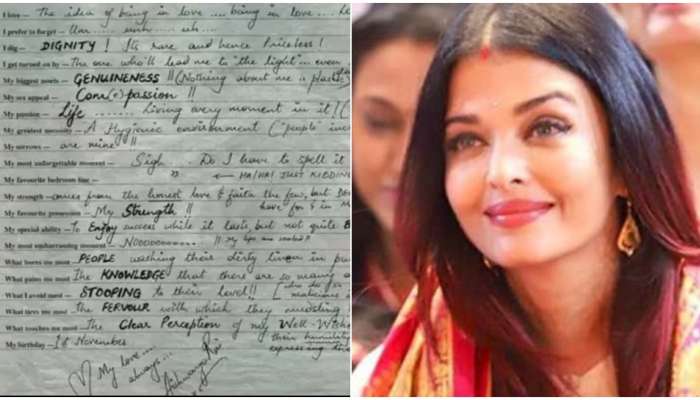 I love — The idea of being in love .... being in love ....
I prefer to forget — Umm ... uhh ... uh...
I dig — DIGNITY! Its rare and hence Priceless!
I get turned on by — The one who'll lead me to "the light"... even
My biggest assets — GENUINENESS!! (Nothing about me is plastic
My sex appeal — Com(+)passion!!
My passion — Life ...... Living every moment in it! (
My greatest necessity — A Hygienic environment ("people"
My sorrows — are mine!!
My most unforgettable moment — Sigh... Do I have to spell it
My favourite bedroom line — HA!HA! JUST KIDDIN
My strength — comes from the honest love & faith the few, but
have for & in
My favourite possession — My Strength!!
My special ability — To Enjoy success while it lasts, but not quite
My most embarrassing moment — Nooooooooo...!! My lips are sealed!!
What bores me most — PEOPLE washing their dirty linen in
What pains me most — The KNOWLEDGE that there are so many
What I avoid most — STOOPING to their level!!
What tires me most — the FERVOUR with which they
What touches me most — The Clear Perception of my Well-Wishe
their humility
expressing
My birthday — 1st November
My love....
always...
Aishwarya Rai